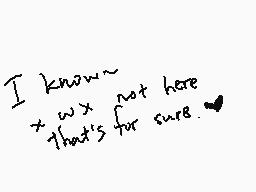 I know~
x w x not here
that's for sure. ♥